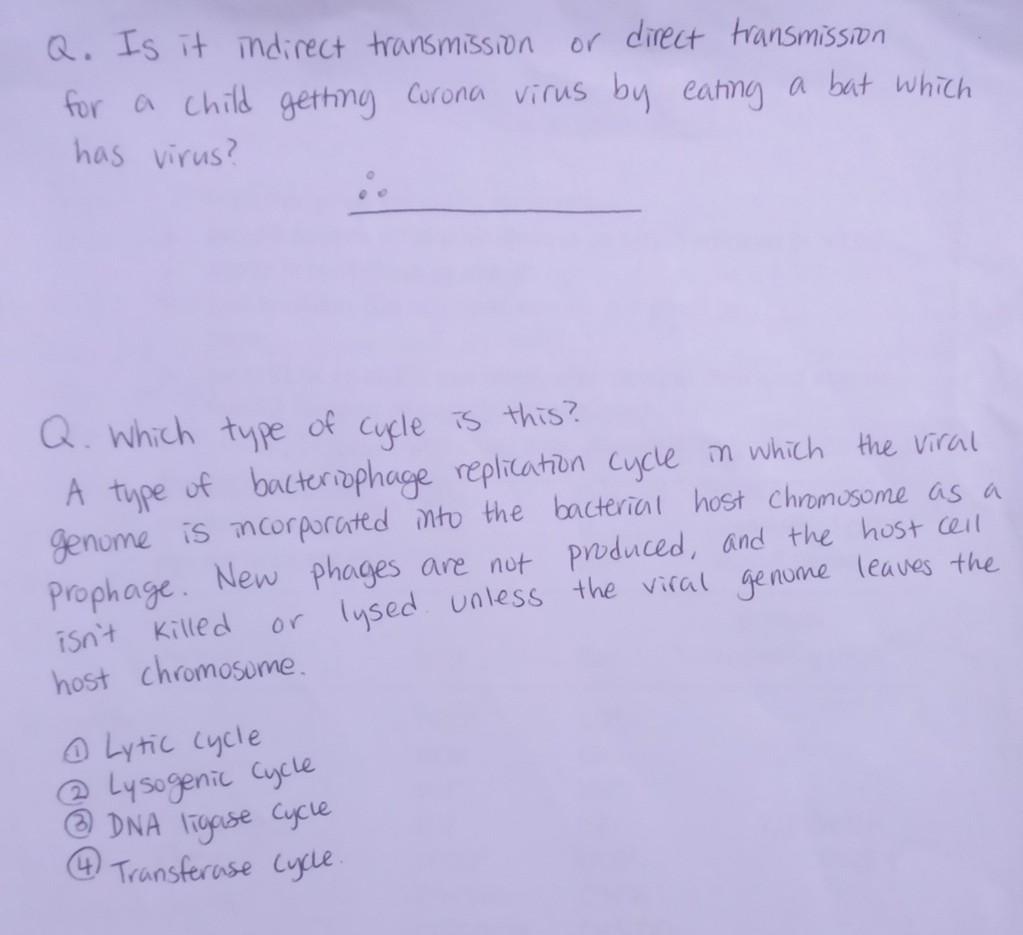 Q. Is it indirect transmission or direct transmission
for a child getting Corona virus by eating a bat which
has virus?
∴
Q. Which type of cycle is this?
A type of bacteriophage replication cycle in which the viral
genome is incorporated into the bacterial host chromosome as a
prophage. New phages are not produced, and the host cell
isn't killed or lysed unless the viral genome leaves the
host chromosome.
① Lytic cycle
② Lysogenic cycle
③ DNA ligase cycle
④ Transferase cycle.